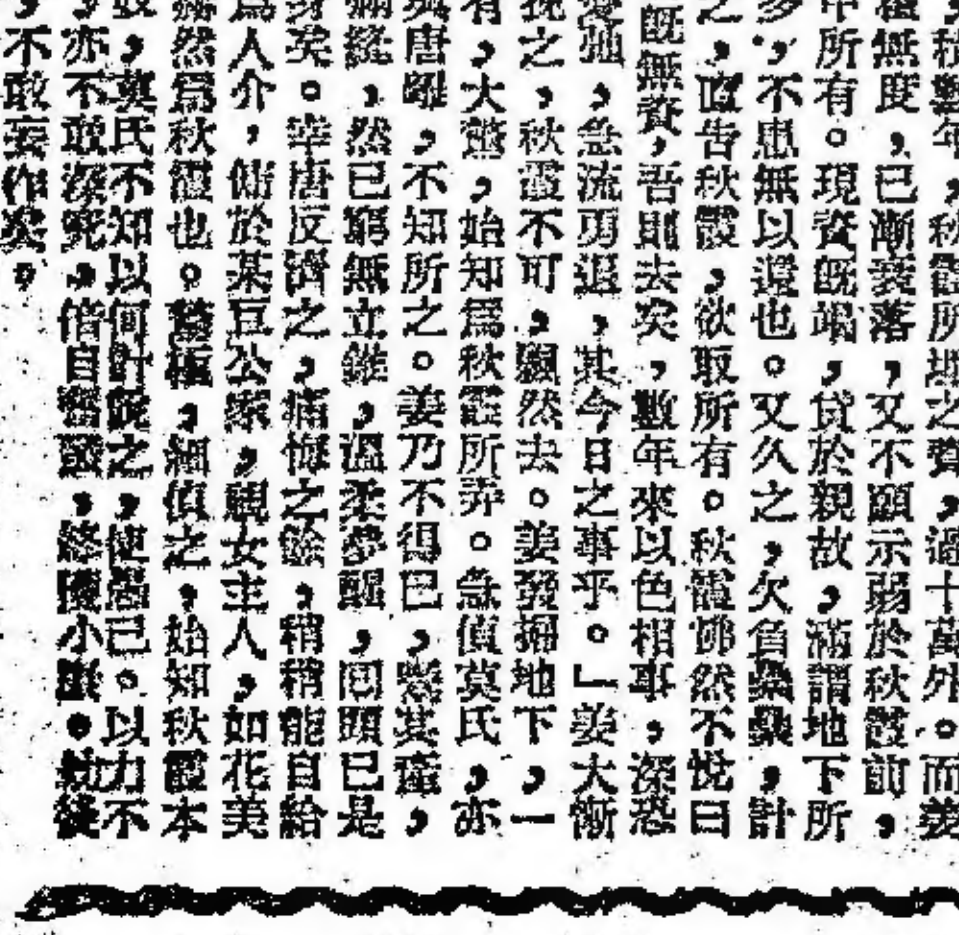 ，積數年，秋霞所珊之聲，過十萬外。而姜
種無度，已漸衰落，又不願示弱於秋霞前，
中所有。現資既竭，貸於親故，滿謂地下所
多，不患無以還也。又久之，欠負纍纍，計
之，直告秋霞，欲取所有。秋霞怫然不悅曰
既無資，吾則去矣，數年來以色相事，深恐
，急流勇退，其今日之事乎。」姜大慚
之，秋霞不可，飄然去。姜發掘地下，一
有，大驚，始知爲秋霞所弄。急偵莫氏，亦
唐曜，不知所之。姜乃不得已，鬻其產，
，然已窮無立錐，溫柔夢醒，回頭已是
矣。幸唐反濟之，痛悔之餘，稍稍能自給
人介，傭於某巨公家，覩女主人，如花美
然爲秋霞也。驚極，細偵之，始知秋霞本
，莫氏不知以何計脫之，使愚己。以力不
亦不敢深究。偕自
，不敢妄作矣。